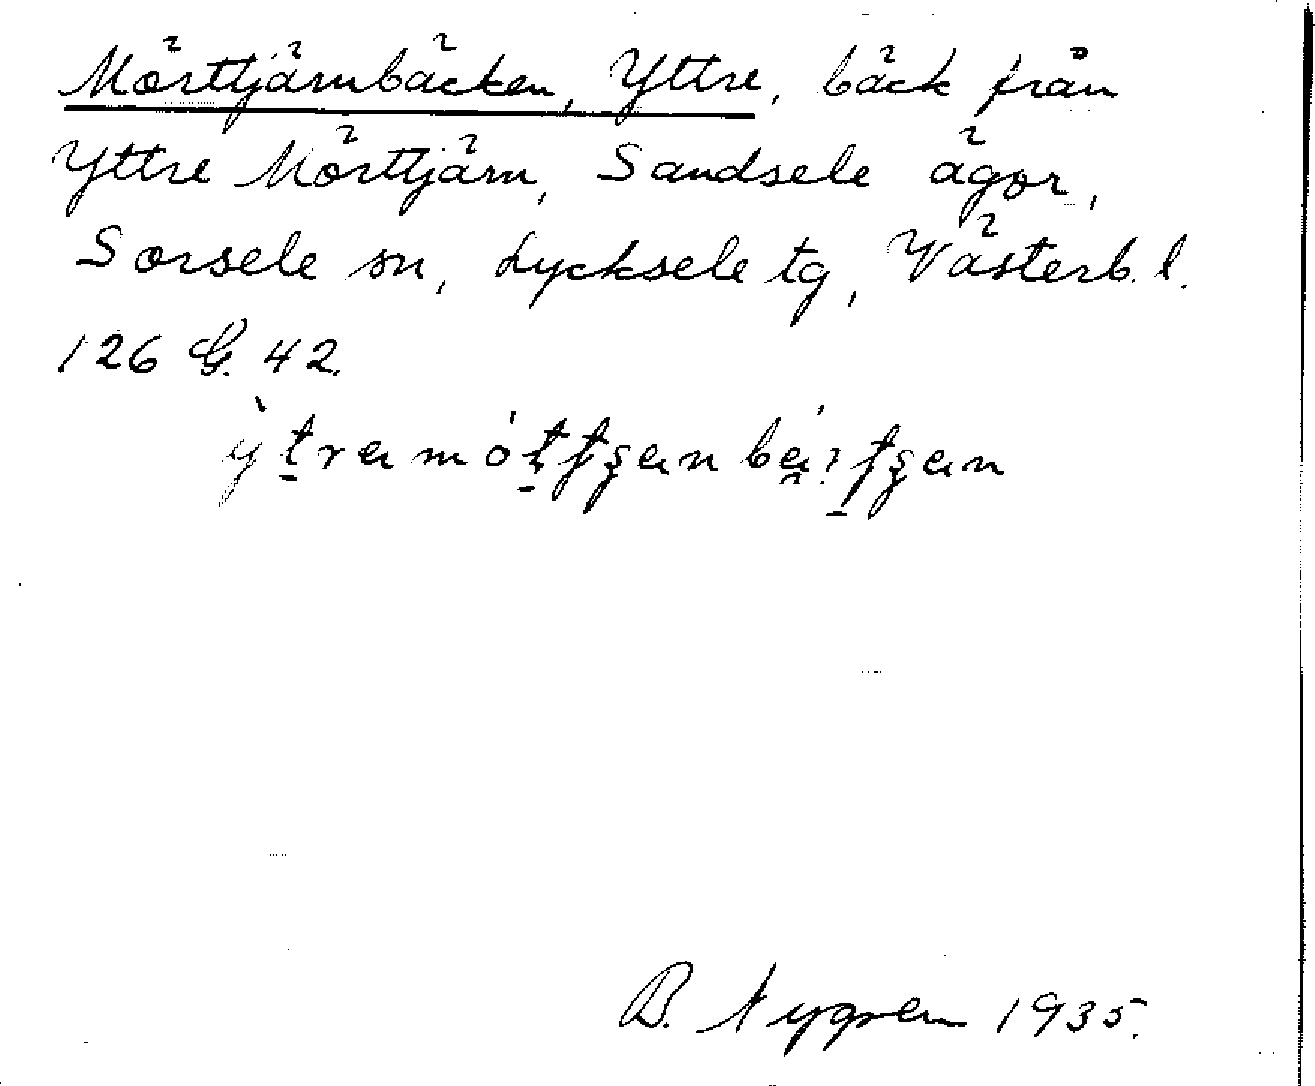 Mörttjärnbäcken, Yttre, bäck från
Yttre Mörttjärn, Sandsele ägor,
Sorsele sn, Lycksele tg, Västerb. l.
126 G. 42.
B. Nygren 1935.